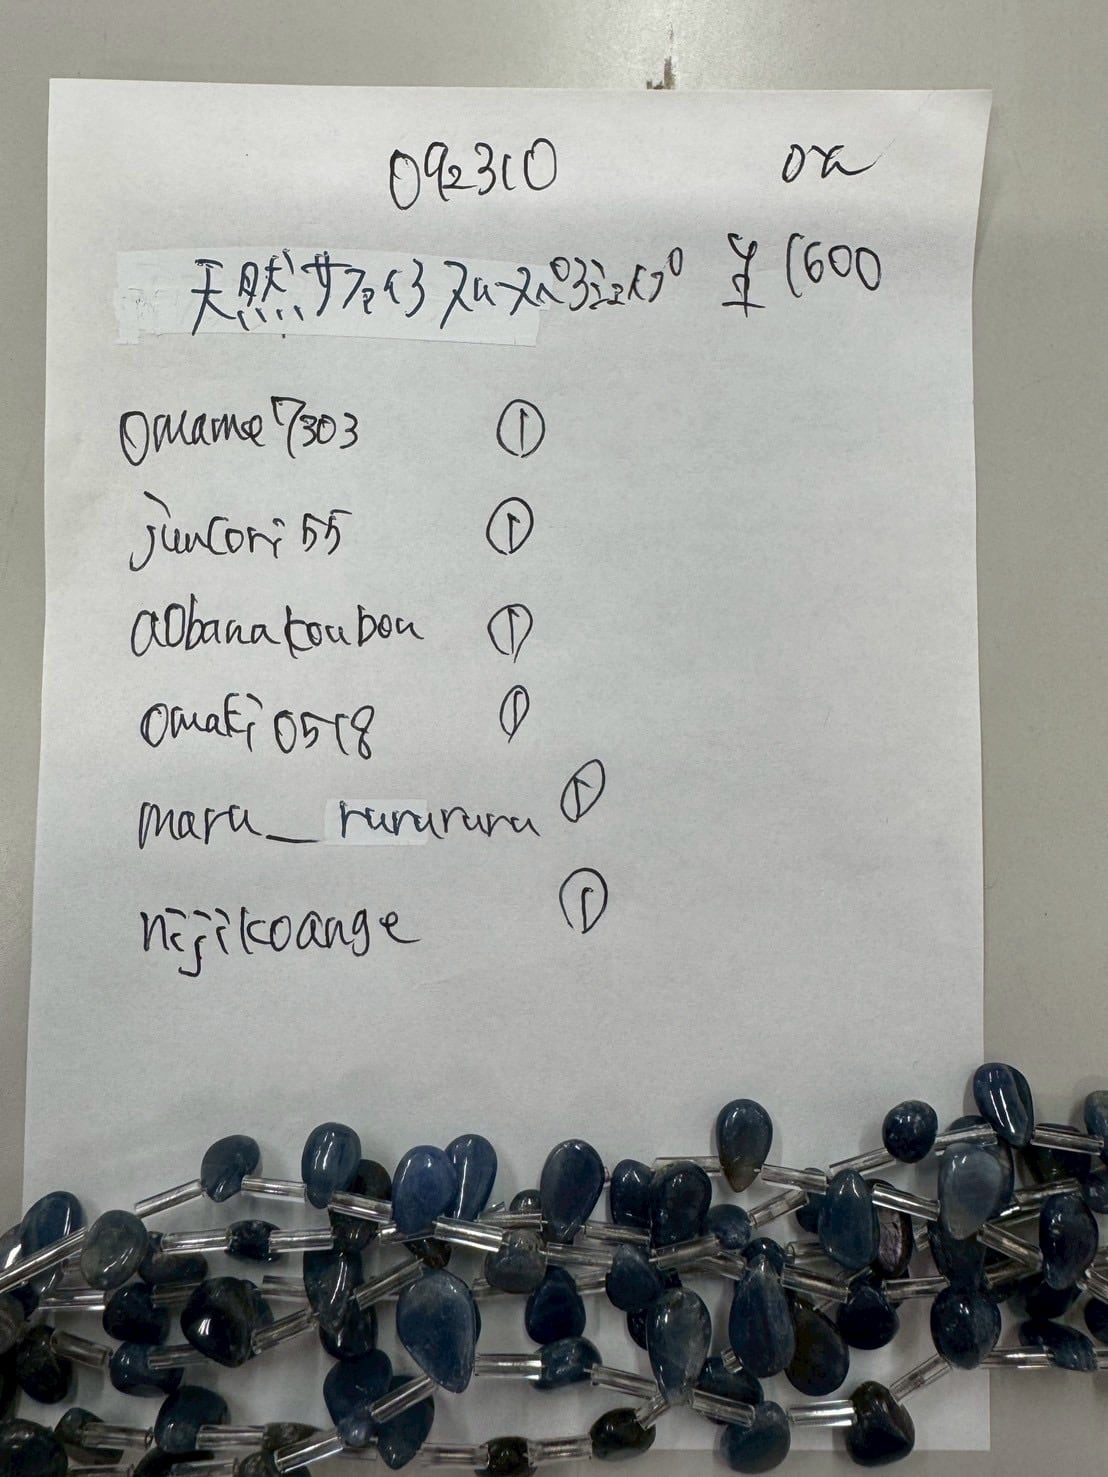 092310
天然サファイヤ スムースペアシェイプ ¥1600
omame7303 ①
juncori55 ①
aobanakoubou ①
omaki0518 ①
maru_rurururu ①
nijikoange ①